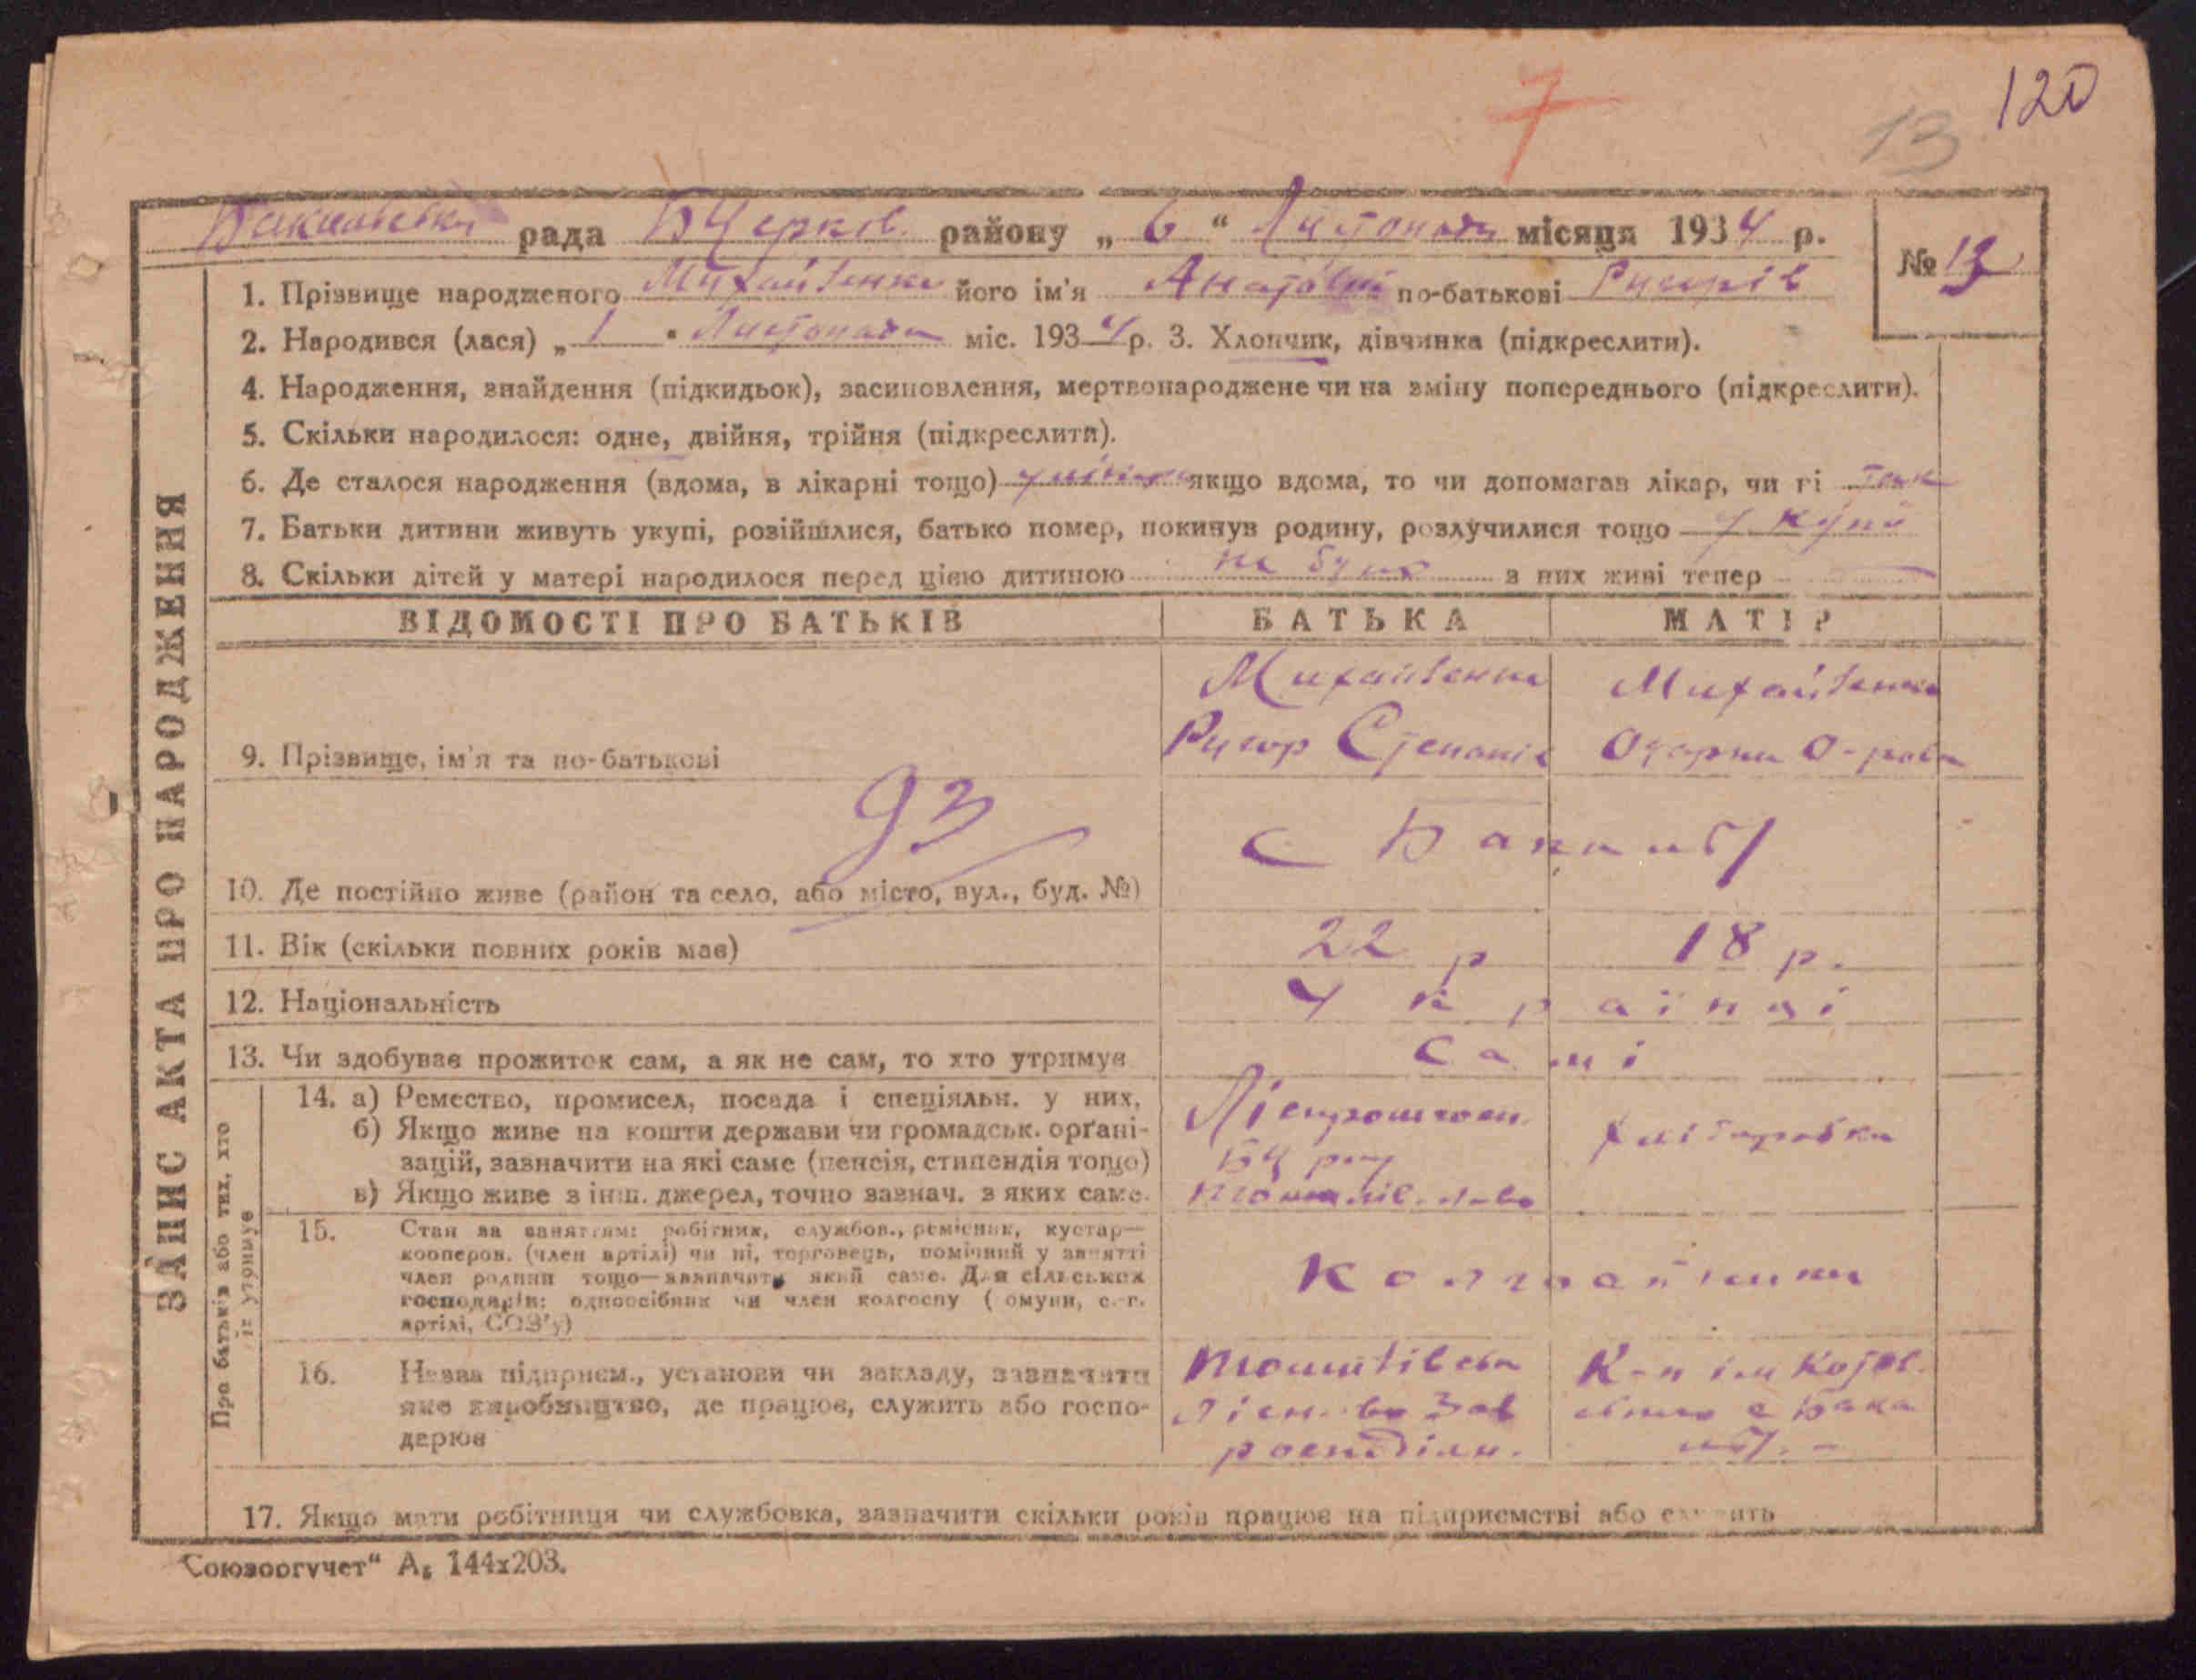 7
13
120
рада БЦерків. району „ 6 “ Листопада місяця 1934 р.
№ 13
1. Прізвище народженого Михайленко його ім'я Анатолій по-батькові Ригорів
2. Народився (лася) „ 1 " Листопада міс. 1934 р. 3. Хлопчик, дівчинка (підкреслити).
4. Народження, знайдення (підкидьок), засиновлення, мертвонароджене чи на зміну попереднього (підкреслити).
5. Скільки народилося: одне, двійня, трійня (підкреслити).
6. Де сталося народження (вдома, в лікарні тощо) якщо вдома, то чи допомагав лікар, чи ні так
7. Батьки дитини живуть укупі, розійшлися, батько помер, покинув родину, розлучилися тощо у купі
8. Скільки дітей у матері народилося перед цією дитиною не було з них живі тепер —
ВІДОМОСТІ ПРО БАТЬКІВ БАТЬКА МАТІР
Михайленко Михайленко
9. Прізвище, ім'я та по-батькові Ригор Степанів Одарка
93
10. Де постійно живе (район та село, або місто, вул., буд. №) с
11. Вік (скільки повних років має) 22 р 18 р.
12. Національність Українці
13. Чи здобуває прожиток сам, а як не сам, то хто утримує Самі
14. а) Ремество, промисел, посада і спеціяльн. у них,
б) Якщо живе на кошти держави чи громадськ. орґані-
зацій, зазначити на які саме (пенсія, стипендія тощо) хліборобка
в) Якщо живе з інш. джерел, точно зазнач. з яких саме.
15. Стан за заняттям: робітник, службов., ремісник, кустар—
кооперов. (член артілі) чи ні, торговець, помічний у занятті
член родини тощо—зазначити який саме. Для сільських
господарів: одноосібник чи член колгоспу (омуни, с.-г.
артілі, СОЗ'у)
16. Назва підприєм., установи чи закладу, зазначити
яке виробництво, де працює, служить або госпо-
дерює
17. Якщо мати робітниця чи службовка, зазначити скільки років працює на підприємстві або служить
ЗАПИС АКТА ПРО НАРОДЖЕННЯ
Про батьків або тих, хто
їх утримує
"Союзоргучет“ А₅ 144х203.